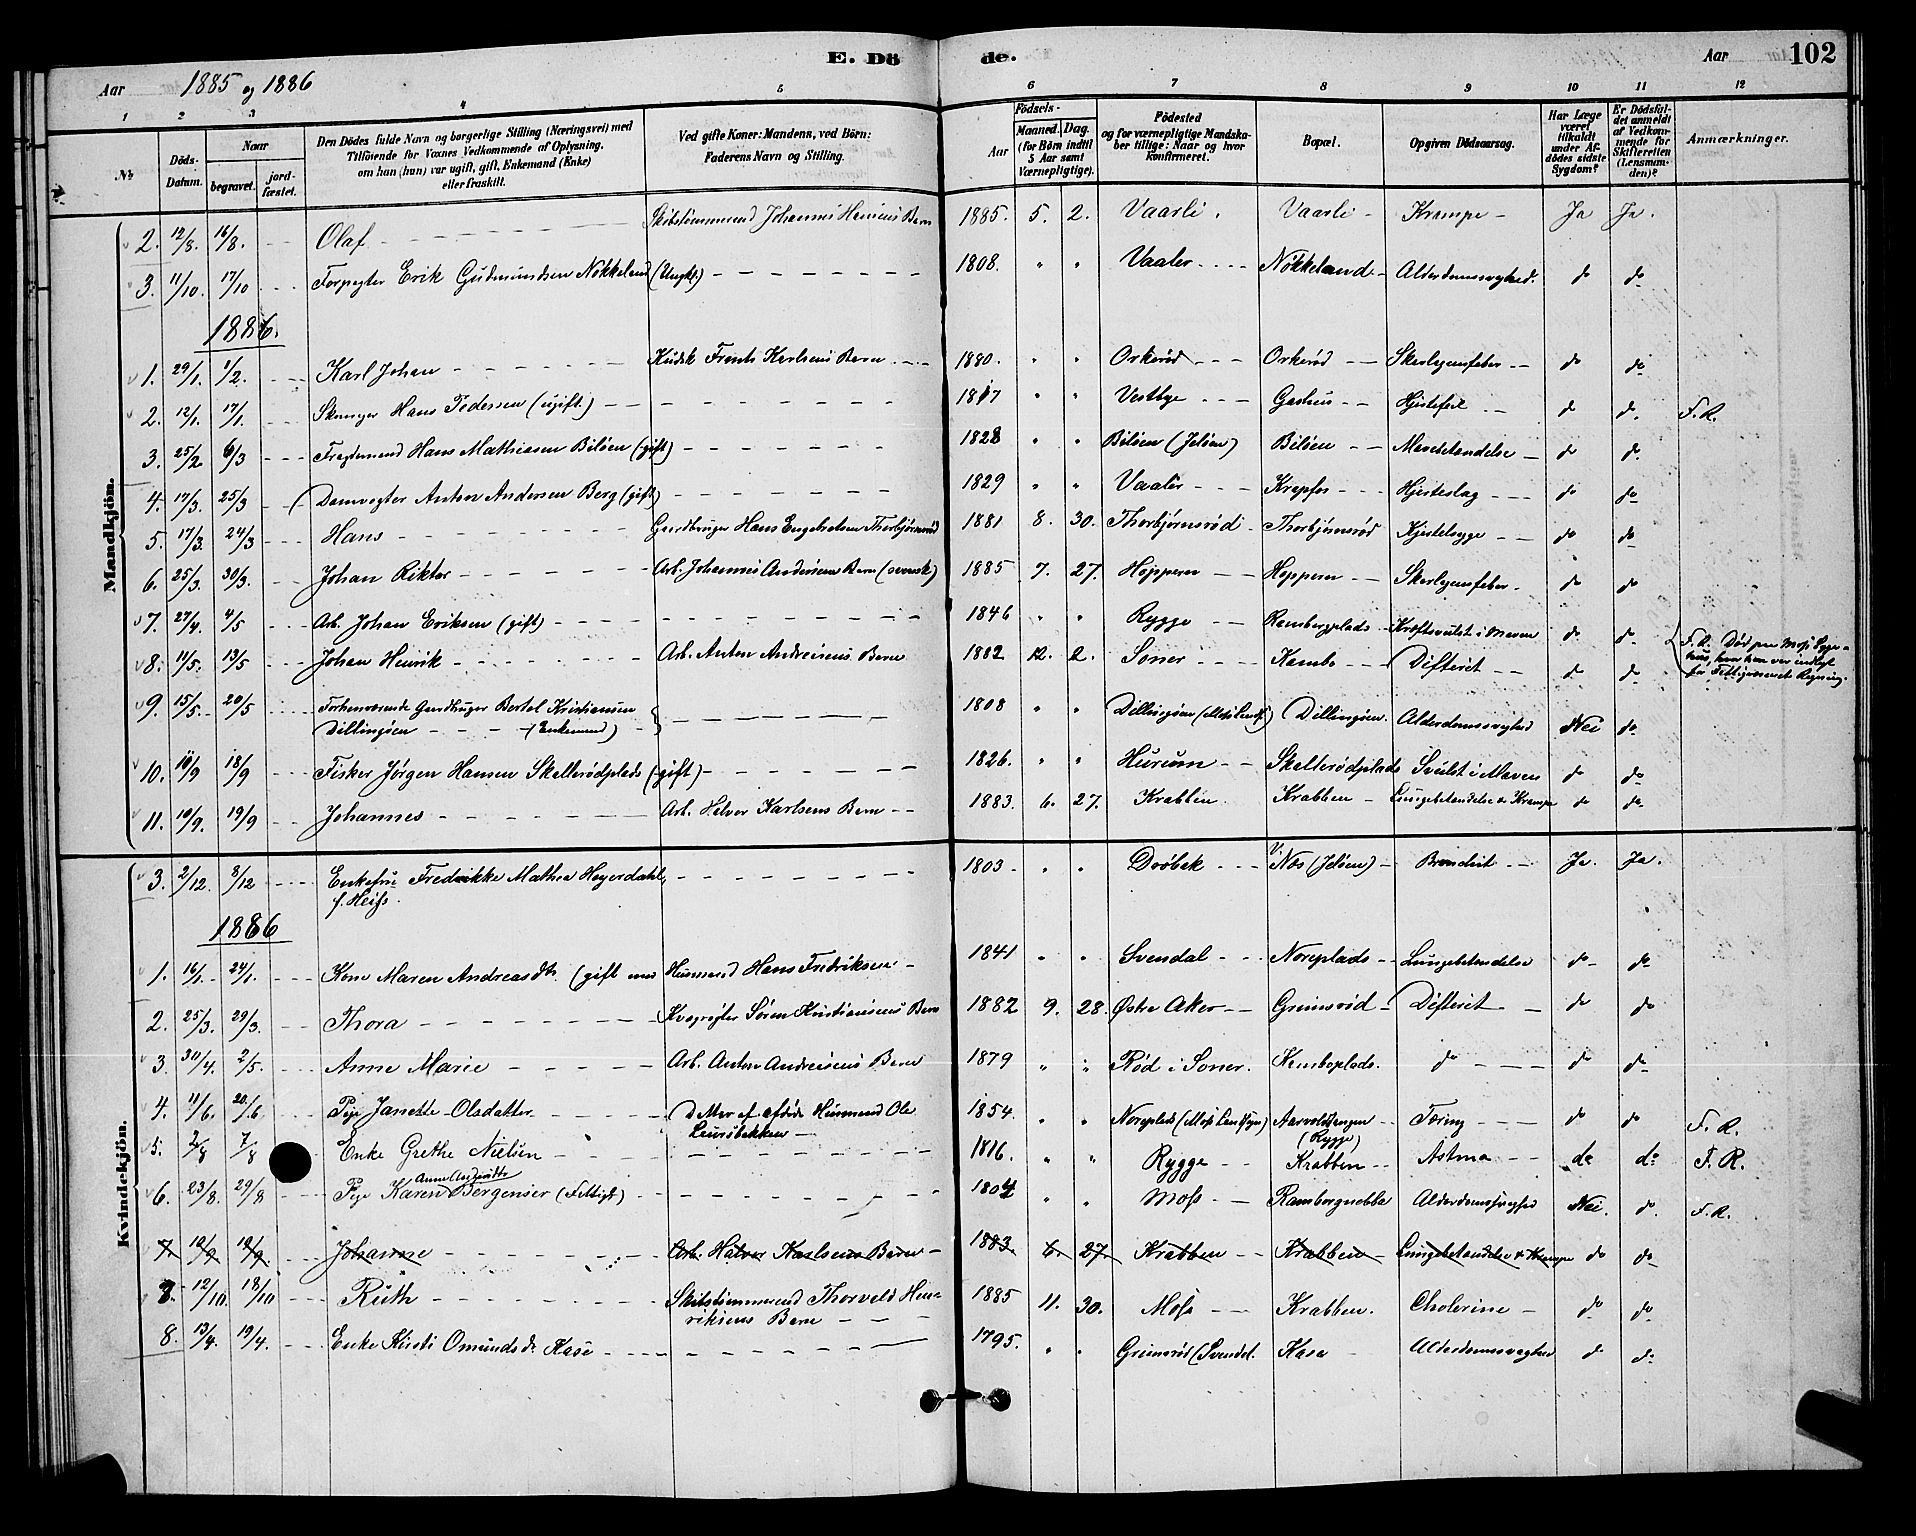 E. Dö de.
Aar 1885 og 1886 Aar 102
1 2 3 4 5 6 7 8 9 10 11 12
№ Döds-Datum. Naar begravet. jord-fæstet. Den Dödes fulde Navn og borgerlige Stilling (Næringsvei) med Tilföiende for Voxnes Vedkommende af Oplysning, om han (hun) var ugift, gift, Enkemand (Enke) eller fraskilt. Ved gifte Koner: Mandens, ved Börn: Faderens Navn og Stilling. Aar Födsels-Maaned. Dag. (for Börn indtil 5 Aar samt Værnepligtige). Födested og for værnepligtige Mandska-ber tillige: Naar og hvor konfirmeret. Bopæl. Opgiven Dödsaarsag. Har Læge været tilkaldt under Af-dödes sidste Sygdom? Er Dödsfal-det anmeldt af Vedkom-mende for Skifteretten (Lensman-den)? Anmærkninger.
Mandkjön.
2. 12/8. 16/8. Olaf Skibstømmermand Johannes Hansens Barn 1885. 5. 2. Vaarli. Vaarli Krampe Ja Ja.
3. 11/10. 17/10 Forpagter Erik Gudmundsen Nøkkeland (Ungk.) 1808. " " Vaaler Nøkkeland Alderdomssvaghed. do do
1886.
1. 29/1. 1/2. Karl Johan Kudsk Frants Karlsens Barn 1880. " " Orkerød Orkerød Skarlagensfeber do do
2. 12/1. 17/1. Hans Pedersen (ugift.) 1817 " " Vestbye Hjertefeil do do. F. R.
3. 25/2. 6/3 Fragtemand Hans Mathiasen Biløen (gift) 1828 " " Biløen (Jeløen) Biløen Mavebetændelse do do.
4. 17/3. 25/3 Damvogter Anton Andersen Berg (gift) 1829 " " Vaaler Krapfos Hjerteslag do do
5. 17/3. 24/3 Hans Gaardbruger Hans Engebretsen Thorbjørnsrød 1881 8. 30. Thorbjørnsrød Thorbjørnsrød Kjertelsyge do do
6. 25/3. 30/3. Johan Viktor Arb. Johannes Andersens Barn (svensk) 1885 7. 27. Hoppern Hoppern Skarlagensfeber do do
7. 27/4. 4/5 Arb. Johan Eriksen (gift) 1846 " " Rygge Rambergplads Kræftsvulst i Maven do do. F. R. Død paa Moss Syge-
8. 11/5. 13/5 Johan Henrik Arb. Anton Andreasens Barn 1882 12. 2. Soner Kambo Difterit do do. hus, hvor han var indlagt for Fattigvæsenets Regning.
9. 15/5. 20/5 Forhenværende Gaardbruger Bertel Kristiansen 1808 " " Dillingøen (Moss Landss.) Dillingøen. Alderdomssvaghed Nei do
Dillingøen (Enkemand)
10. 10/9 18/9 Fisker Jørgen Hansen Skallerødplads (gift) 1826. " " Hurum Skallerødplads Svulst i Maven do do
11. 10/9. 19/9 Johannes Arb. Halvor Karlsens Barn 1883. 6. 27. Krabben. Krabben Lungebetændelse & Krampe do do
Kvindekjön.
3. 2/12. 8/12 Enkefru Fredrikke Mathea Heyerdahl, 1803 " " Drøbak V. Nøs (Jeløen) Brandsit Ja. Ja.
f. Heiss.
1886
1. 16/1. 24/1. Kone Maren Andreasdtr. (gift med Husmand Hans Fredriksen 1841 " " Svendal Noreplads Lungebetændelse do do
2. 25/3. 29/3. Thora Kvægrøgter Søren Kristiansens Barn 1882 9. 28. Østre Aker Grimsrød Difterit do do
3. 30/4. 2/5. Anne Marie Arb. Anton Andreasens Barn 1879 " " Rød i Soner. Kamboplads. do do do
4. 11/6. 20/6 Pige Janette Olsdatter Datter af afdøde Husmand Ole 1854. " " Noreplads (Moss Landssogn) Aarvoldtangen Tæring do do F. R.
(Rygge)
5. 2/8 7/8 Enke Grethe Nielsen 1816. " " Rygge Krabben Astma do do F. R.
Anne Andrine
6. 23/8. 29/8 Pige Karen Bergersen (Fattigl.) 1804 " " Moss Rambergnebba Alderdomssvaghed Nei. do. F. R.
7. 10/9 19/9. Johanne Arb. Halvor Karlsens Barn 1883. 6. 27. Krabben Krabben Lungebetændelse & Krampe do do
7. 12/10. 18/10 Ruth Skibstømmermand Thorvald Hen- 1885 11. 30. Moss Krabben. Cholerine do do
riksens Barn
8. 13/4. 19/4. Enke Kirsti Omundsdr. Kase 1795. " " Grimsrød (Svendal. Kase Alderdomssvaghed do do